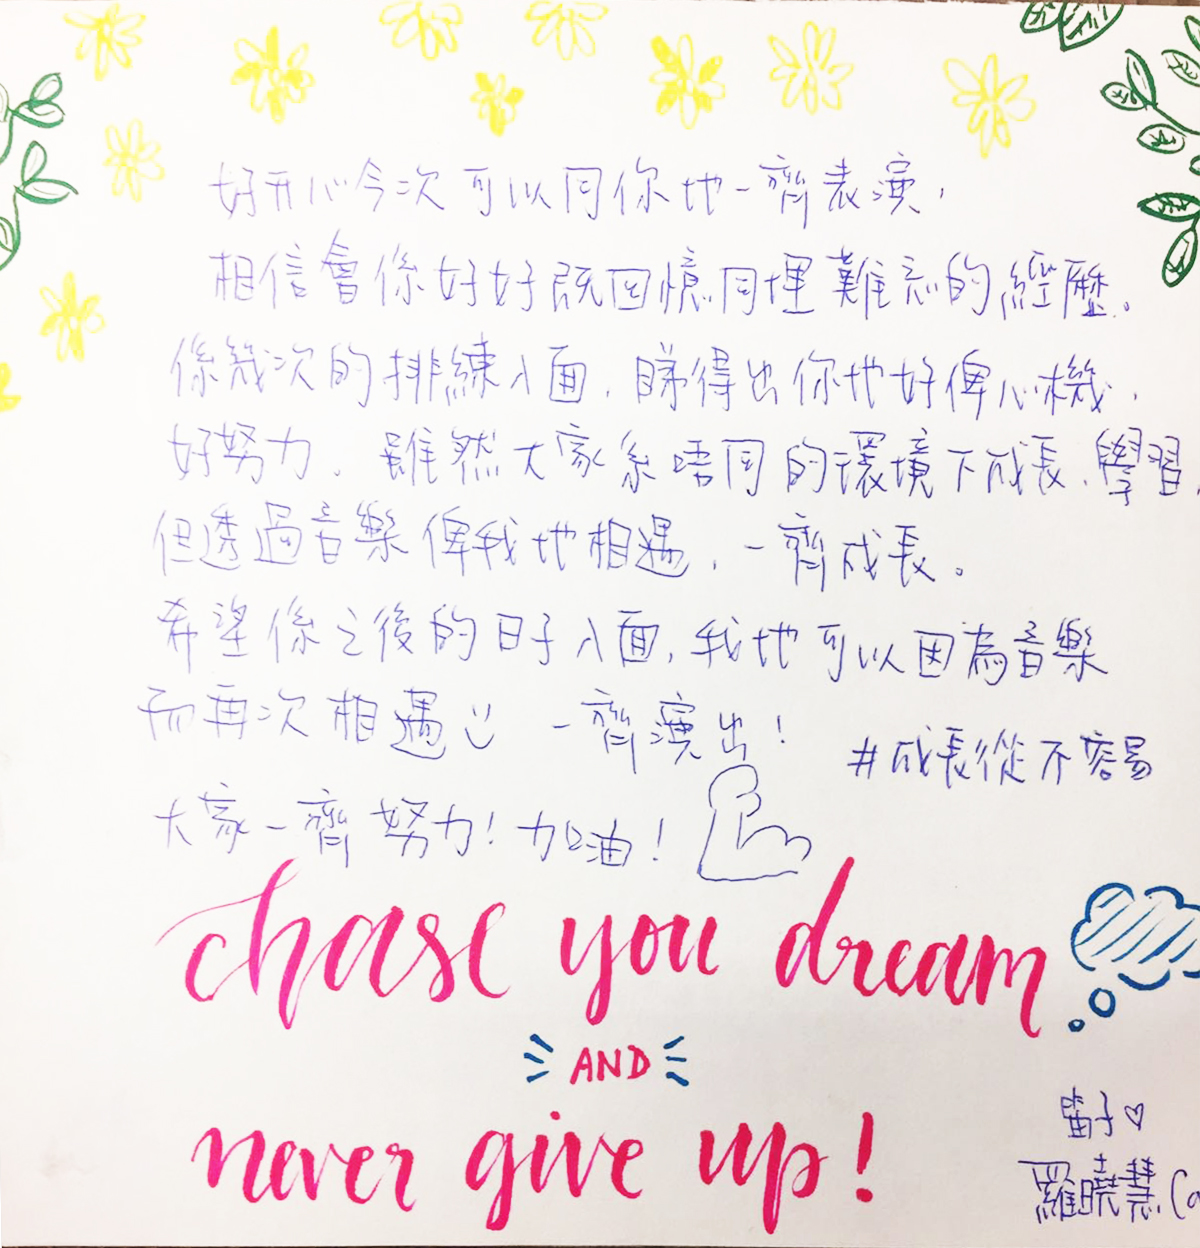 好开心今次可以同你地一齊表演，
相信會係好好既回憶同埋難忘的經歷。
係幾次的排練入面，睇得出你地好俾心機，
好努力。雖然大家系唔同的環境下成長、學習，
但透過音樂俾我地相遇，一齊成長。
希望係之後的日子入面，我地可以因為音樂
而再次相遇 一齊演出！
#成長從不容易
大家一齊努力！加油！
chase you dream
AND
never give up!
笛子♡
羅曉慧 Ca